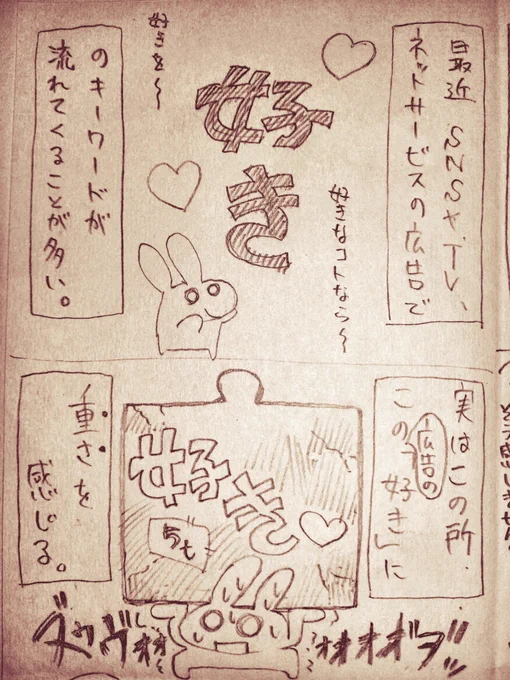 最近 SNSやTV、
ネットサービスの広告で
好きなコトなら〜
好き
好きを〜
のキーワードが
流れてくることが多い。
実はこの所、
広告の
この「好き」に
好き
5t
重さを
感じる。